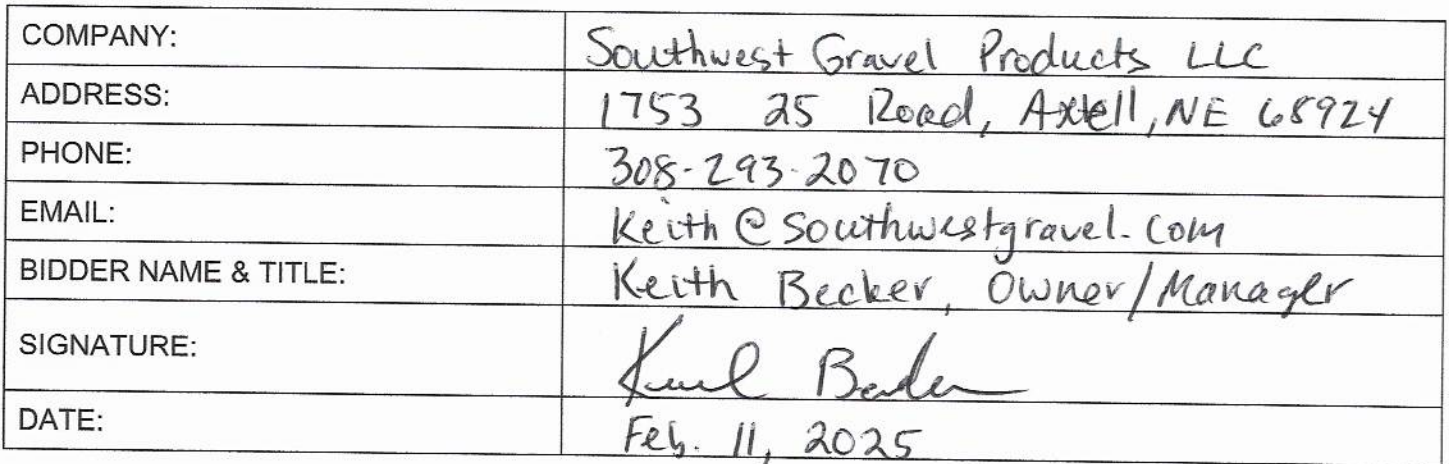 COMPANY: Southwest Gravel Products LLC
ADDRESS: 1753 25 Road, Axtell, NE 68924
PHONE: 308-293-2070
EMAIL: Keith@southwestgravel.com
BIDDER NAME & TITLE: Keith Becker, Owner/Manager
SIGNATURE:
DATE: Feb. 11, 2025